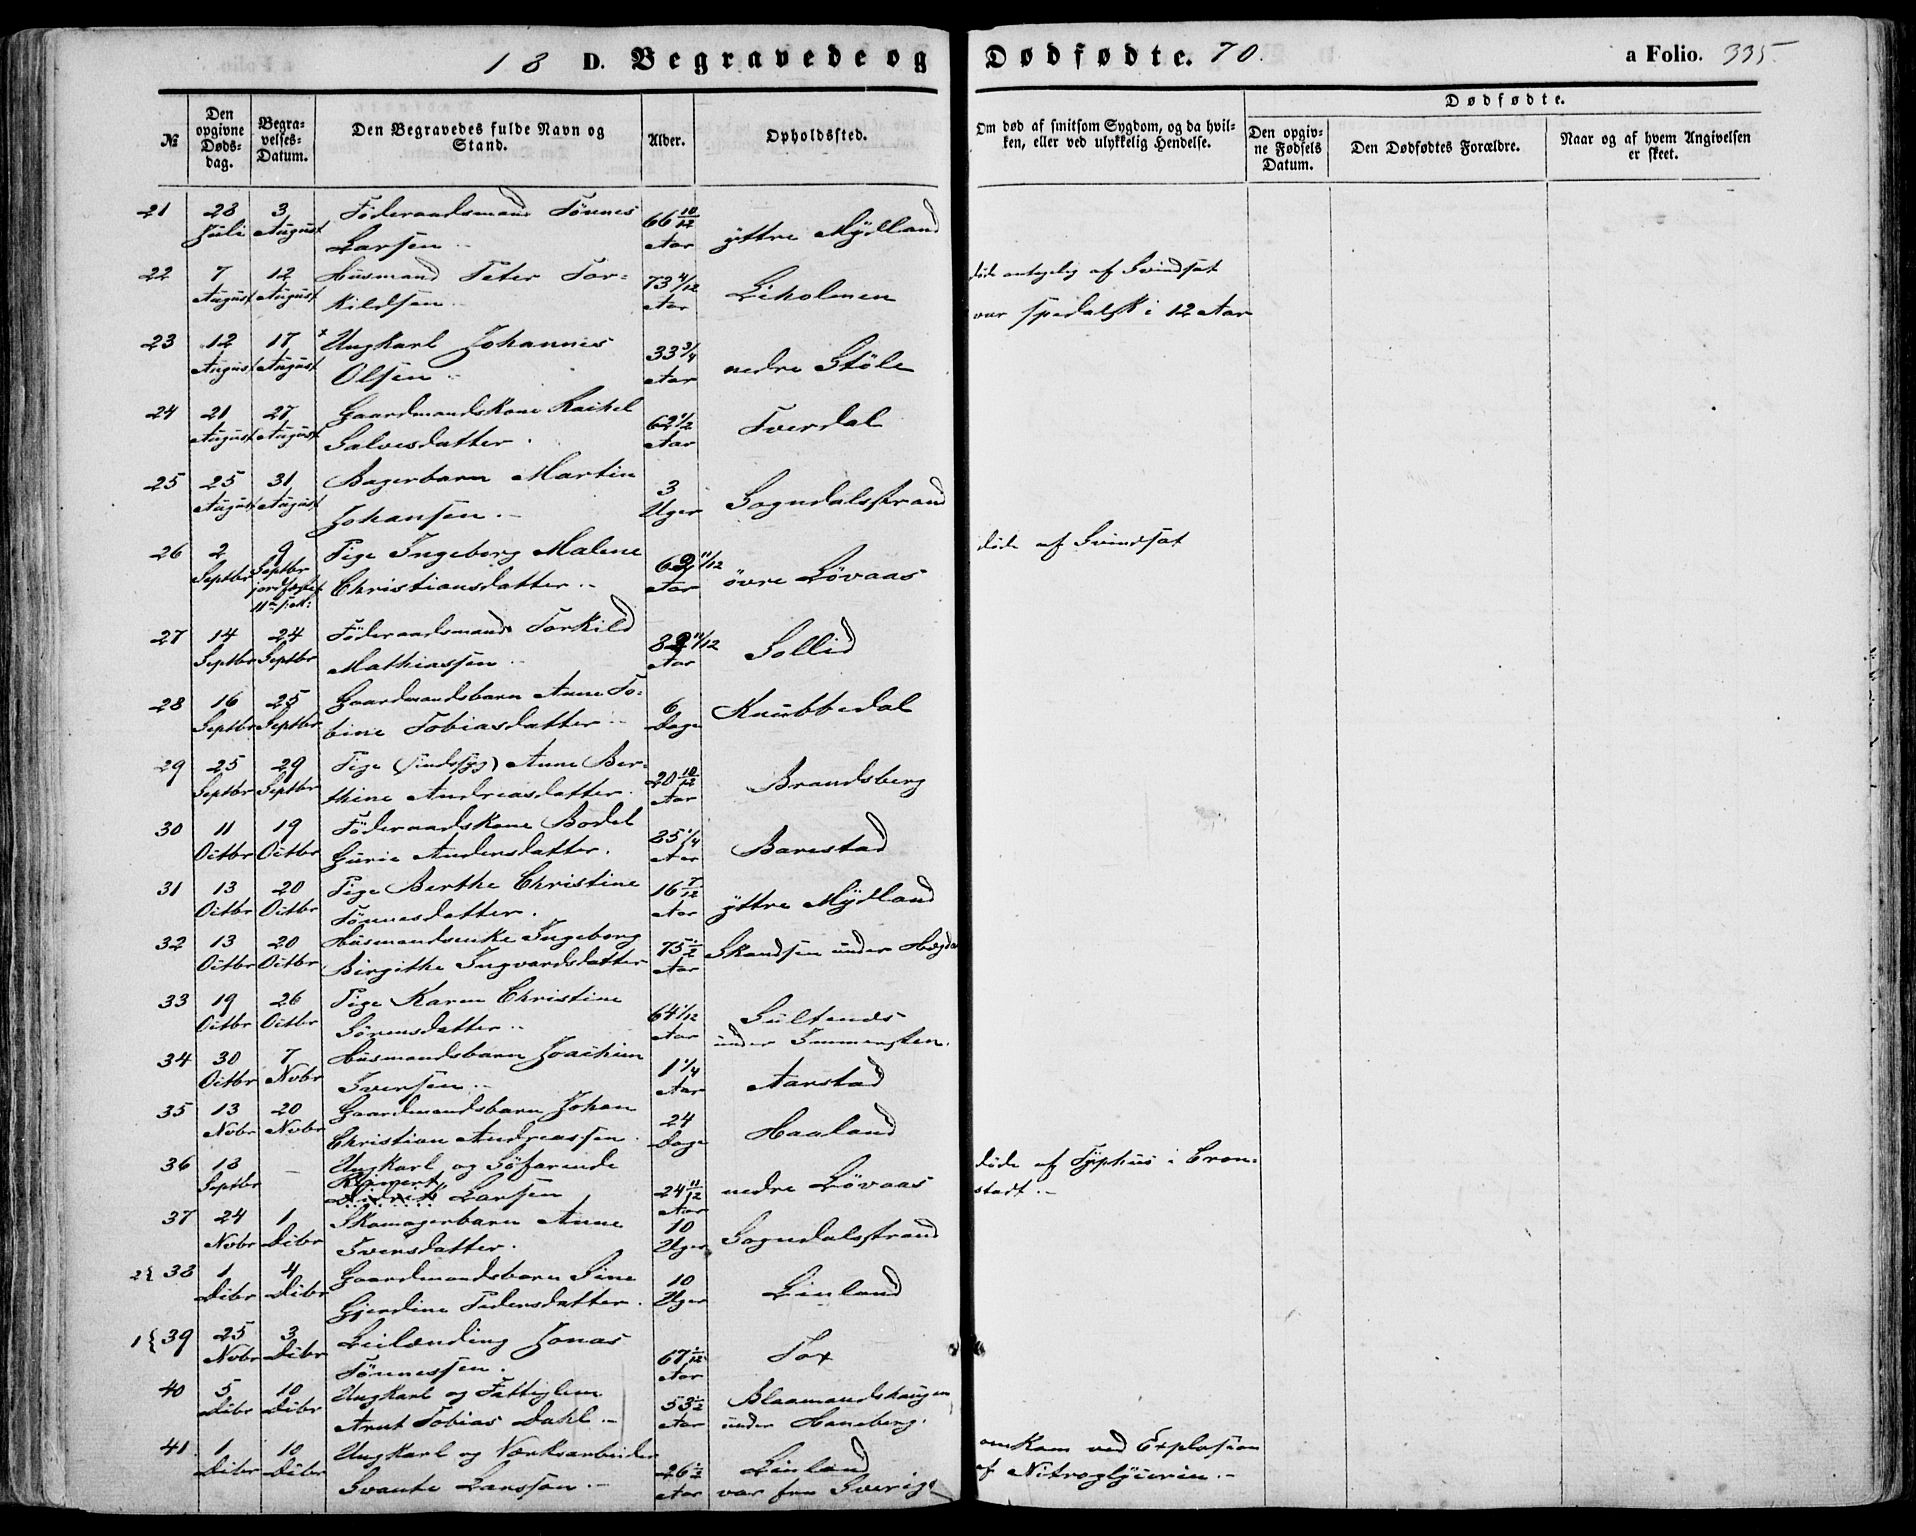 18 D. Begravede og Dødfødte. 70.
a Folio. 335.
№
Den opgivne Døds-dag.
Begra-velses-Datum.
Den Begravedes fulde Navn og Stand.
Alder.
Opholdssted.
Om død af smitsom Sygdom, og da hvil-ken, eller ved ulykkelig Hendelse.
Dødfødte.
Den opgiv-ne Fødsels Datum.
Den Dødfødtes Forældre.
Naar og af hvem Angivelsen er skeet.
21 28 Juli 3 August Föderaadsmand Tönnes Larsen 66 10/12 Aar yttre Mydland
22 7 August 12 August Husmand Peter Tor-kildsen 73 4/12 Aar Liholmen
døde antagelig af Svindsot
var spedalsk i 12 Aar
23 12 August 17 August Ungkarl Johannes Olsen 33 3/4 Aar nedre Støle
24 21 August 27 August Gaardmandskone Rachel Salvesdatter 62 1/2 Aar Tverdal
25 25 August 31 August Bagerbarn Martin Johansen 3 Uger Sogndalsstrand
26 2 Septbr 9 Septbr jordfæstet Pige Ingeborg Malene Christiansdatter 11/12 Aar övre Lövaas
døde af Svindsot
27 14 Septbr 24 Septbr Föderaadsmand Torkild Mathiassen 11/12 Aar Sollid
28 16 Septbr 25 Septbr Gaardmandsbarn Anne To-bine Tobiasdatter 6 Dage Knubbedal
29 25 Septbr 29 Septbr Pige (sindssyg) Anne Ber-thine Andreasdatter. 20 10/12 Aar Brandsberg
30 11 Octbr 19 Octbr Föderaadskone Bodel Gurie Andersdatter. 85 1/4 Aar Barestad
31 13 Octbr 20 Octbr Pige Berthe Christine Tönnesdatter. 16 7/12 Aar yttre Mydland
32 13 Octbr 20 Octbr Husmandsenke Ingeborg Birgithe Ingvardsdatter 75 1/2 Aar Skandsen under
33 19 Octbr 26 Octbr Pige Karen Christine Sörensdatter 64 1/12 Aar under
34 30 Octbr 7 Novbr Husmandsbarn Joachim Iversen 1 1/4 Aar Aarstad
35 13 Novbr 20 Novbr Gaardmandsbarn Johan Christian Andreassen. 24 Dage Haaland
36 18 Septbr — Ungkarl og Söfarende Larsen 24 11/12 Aar nedre Lövaas
døde af Typhus i Cron-stadt.
37 24 Novbr 1 Dcbr Skomagerbarn Anne Iversdatter. 10 Uger Sogndalsstrand
2{ 38 1 Dcbr 4 Dcbr Gaardmandsbarn Sine Gjerdine Pedersdatter. 10 Uger Linland
1{ 39 25 Novbr 3 Dcbr Leilænding Jonas Tönnessen. 67 1/12 Aar Tox
40 5 Dcbr 10 Dcbr Ungkarl og Fattiglem Arnt Tobias Dahl. 53 1/2 Aar Blaamandshaugen under Haneberg.
41. 1 Dcbr 10 Dcbr Ungkarl og Værksarbeider Svante Larsson. 26 1/2 Aar Linland var fra Sverige
omkom ved Explosion
af Nitroglycerin.